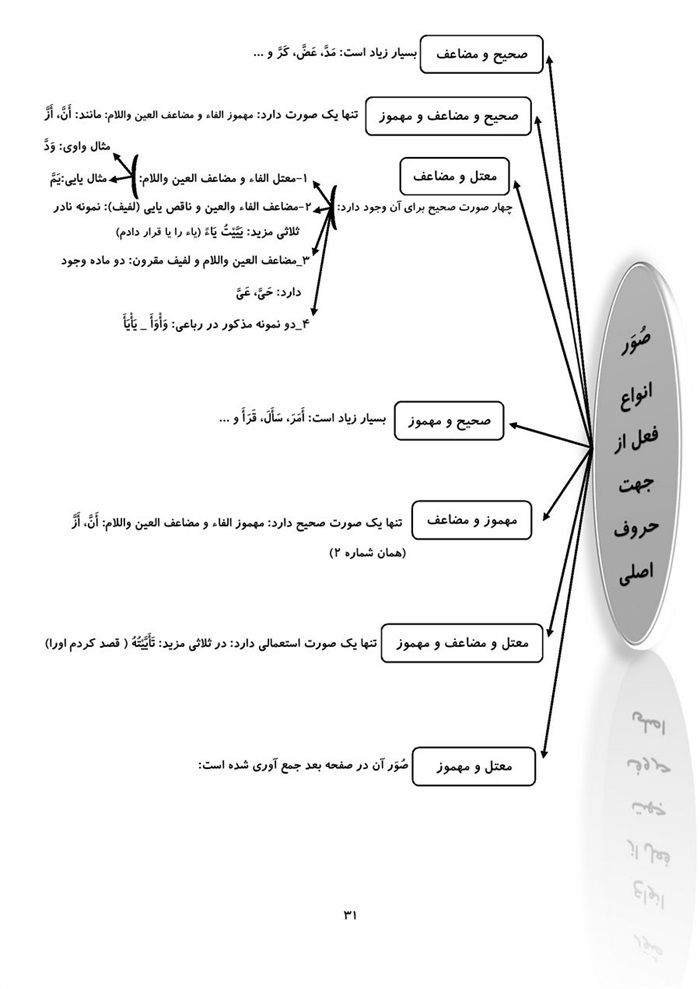 صُوَر
انواع
فعل از
جهت
حروف
اصلی
صحیح و مضاعف
بسیار زیاد است: مَدَّ، عَضَّ، کَرَّ و ...
صحیح و مضاعف و مهموز
تنها یک صورت دارد: مهموز الفاء و مضاعف العین واللام: مانند: أَنَّ، أَزَّ
معتل و مضاعف
چهار صورت صحیح برای آن وجود دارد:
۱-معتل الفاء و مضاعف العین واللام:
مثال واوی: وَدَّ
مثال یایی:یَمَّ
۲-مضاعف الفاء والعین و ناقص یایی (لفیف): نمونه نادر
ثلاثی مزید: یَیَّیْتُ یَاءً (یاء را یا قرار دادم)
۳_مضاعف العین واللام و لفیف مقرون: دو ماده وجود
دارد: حَیَّ، عَیَّ
۴_دو نمونه مذکور در رباعی: وَأْوَأَ _ یَأْیَأَ
صحیح و مهموز
بسیار زیاد است: أَمَرَ، سَأَلَ، قَرَأَ و ...
مهموز و مضاعف
تنها یک صورت صحیح دارد: مهموز الفاء و مضاعف العین واللام: أَنَّ، أَزَّ
(همان شماره ۲)
معتل و مضاعف و مهموز
تنها یک صورت استعمالی دارد: در ثلاثی مزید: تَأَیَّیْتُهُ ( قصد کردم اورا)
معتل و مهموز
صُوَر آن در صفحه بعد جمع آوری شده است:
۳۱